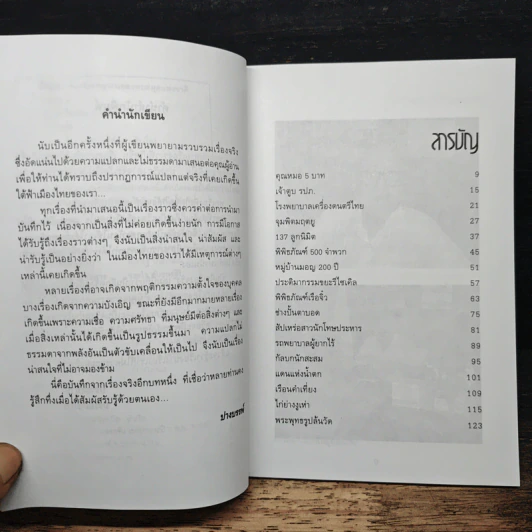 คำนำนักเขียน
นับเป็นอีกครั้งหนึ่งที่ผู้เขียนพยายามรวบรวมเรื่องจริง
ซึ่งอัดแน่นไปด้วยความแปลกและไม่ธรรมดามาเสนอต่อคุณผู้อ่าน
เพื่อให้ท่านได้ทราบถึงปรากฏการณ์แปลกแต่จริงที่เคยเกิดขึ้น
ใต้ฟ้าเมืองไทยของเรา...
ทุกเรื่องที่นำมาเสนอนี้เป็นเรื่องราวซึ่งควรค่าต่อการนำมา
บันทึกไว้ เนื่องจากเป็นสิ่งที่ไม่ค่อยเกิดขึ้นง่ายนัก การมีโอกาส
ได้รับรู้ถึงเรื่องราวต่างๆ จึงนับเป็นสิ่งน่าสนใจ น่าสัมผัส และ
น่ารับรู้เป็นอย่างยิ่งว่า ในเมืองไทยของเราได้มีเหตุการณ์ต่างๆ
เหล่านี้เคยเกิดขึ้น
หลายเรื่องที่อาจเกิดจากพฤติกรรมความตั้งใจของบุคคล
บางเรื่องเกิดจากความบังเอิญ ขณะที่ยังมีอีกมากมายหลายเรื่อง
เกิดขึ้นเพราะความเชื่อ ความศรัทธา ที่มนุษย์มีต่อสิ่งต่างๆ และ
เมื่อสิ่งเหล่านั้นได้เกิดขึ้นเป็นรูปธรรมขึ้นมา ความแปลกไม่
ธรรมดาจากพลังอันเป็นตัวขับเคลื่อนให้เป็นไป จึงนับเป็นเรื่อง
น่าสนใจที่ไม่อาจมองข้าม
นี่คือบันทึกจากเรื่องจริงอีกบทหนึ่ง ที่เชื่อว่าหลายท่านคง
รู้สึกทึ่งเมื่อได้สัมผัสรับรู้ด้วยตนเอง...
สารบัญ
คุณหมอ 5 บาท 9
เจ้าตูบ รปภ. 15
โรงพยาบาลเครื่องดนตรีไทย 21
จุมพิตมฤตยู 27
137 ลูกนิมิต 37
พิพิธภัณฑ์ 500 จำพวก 45
หมู่บ้านมอญ 200 ปี 51
ประติมากรรมขยะรีไซเคิล 57
พิพิธภัณฑ์เรือจิ๋ว 63
ช่างปั้นตาบอด 75
สัปเหร่อสาวนักโทษประหาร 81
รถพยาบาลผู้ยากไร้ 89
กัลบกนักสะสม 95
แดนแห่งน้ำตก 101
เรือนคำเที่ยง 109
ไก่ย่างงูเห่า 115
พระพุทธรูปล้นวัด 123